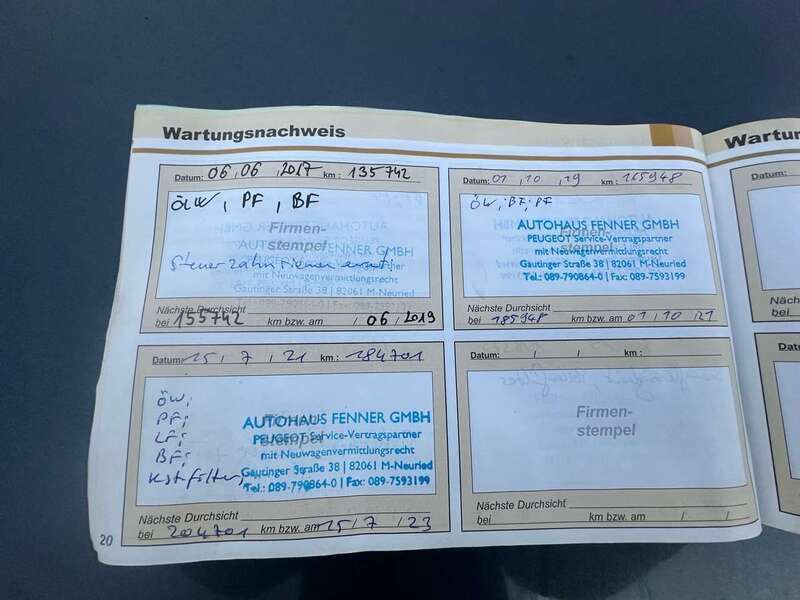 Wartungsnachweis
Datum: 06,06,2017 km: 135742
ÖLW, PF, BF
Firmen-
stempel
AUTOHAUS FENNER GMBH
mit Neuwagenvermittlungsrecht
Gautinger Straße 38 | 82061 M-Neuried
Steuerzahnriemen
Nächste Durchsicht
bei 155742 km bzw. am / 06, 2019
Datum: 01, 10, 19 km: 165948
ÖW, BF, PF
Firmen-
stempel
AUTOHAUS FENNER GMBH
PEUGEOT Service-Vertragspartner
mit Neuwagenvermittlungsrecht
Gautinger Straße 38 | 82061 M-Neuried
Tel.: 089-790864-0 | Fax: 089-7593199
Nächste Durchsicht
bei 185948 km bzw. am 01, 10, 21
Datum: 15, 7, 21 km: 184701
ÖW;
PF;
LF;
BF;
Kstfilter,
Firmen-
stempel
AUTOHAUS FENNER GMBH
PEUGEOT Service-Vertragspartner
mit Neuwagenvermittlungsrecht
Gautinger Straße 38 | 82061 M-Neuried
Tel.: 089-790864-0 | Fax: 089-7593199
Nächste Durchsicht
bei 204701 km bzw. am 15, 7, 23
Datum: / / km:
Firmen-
stempel
Nächste Durchsicht
bei km bzw. am / /
20
Wartun
Datum:
Näch
bei
Datu
Näc
bei